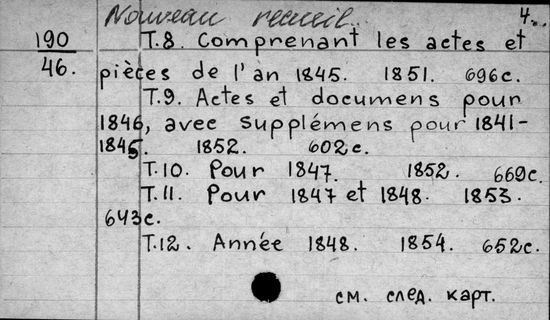 Nouveau recueil... 4...
190 T.8. Comprenant les actes et
46. pièces de l'an 1845. 1851. 696c.
T.9. Actes et documens pour
1846, avec supplémens pour 1841-
1845. 1852. 602c.
T.10. Pour 1847. 1852. 669c.
T.11. Pour 1847 et 1848. 1853.
643c.
T.12. Année 1848. 1854. 652c.
см. след. карт.